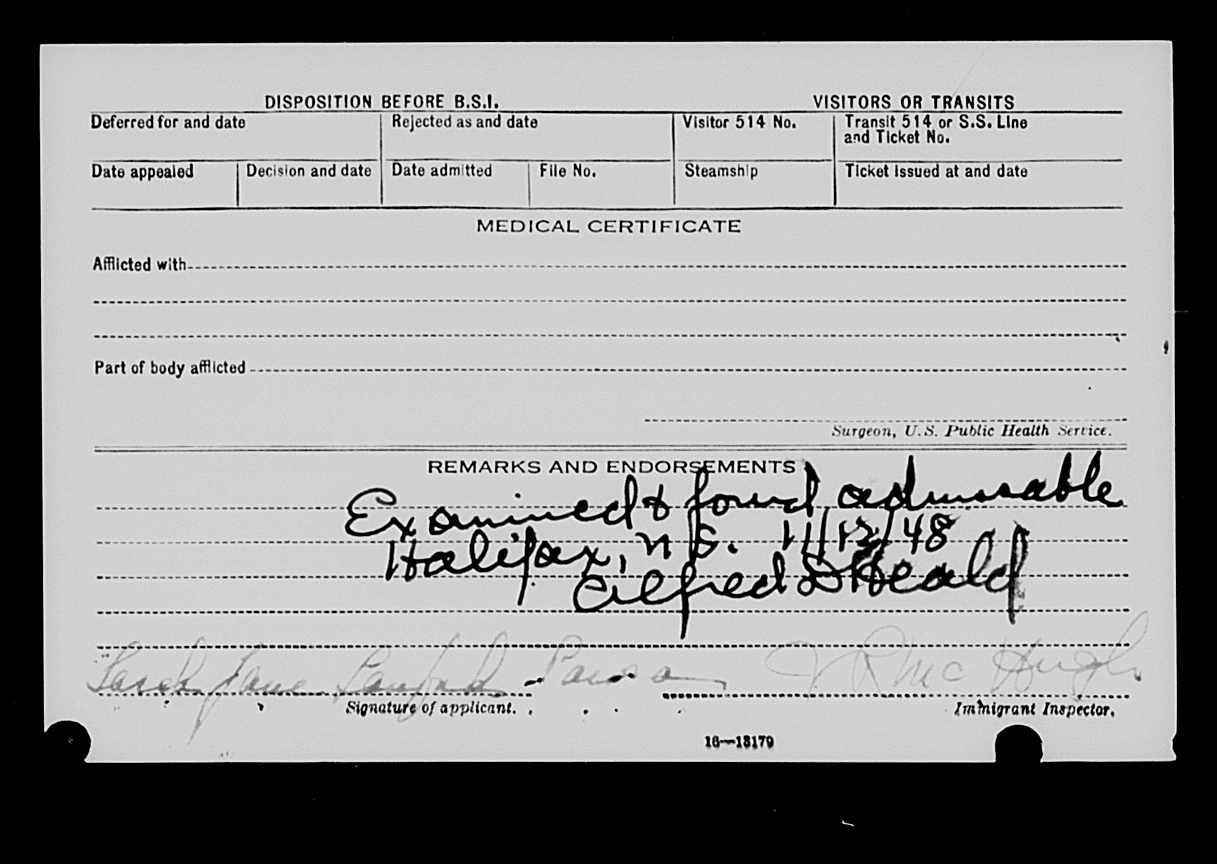 DISPOSITION BEFORE B.S.I. VISITORS OR TRANSITS
Deferred for and date Rejected as and date Visitor 514 No. Transit 514 or S.S. Line
and Ticket No.
Date appealed Decision and date Date admitted File No. Steamship Ticket issued at and date
MEDICAL CERTIFICATE
Afflicted with
Part of body afflicted
Surgeon, U.S. Public Health Service.
REMARKS AND ENDORSEMENTS
Examined & found admissable
Halifax, N.S. 11/12/48
Alfred D Heald
Sarah Jane Sanford Mc Hugh
Signature of applicant. Immigrant Inspector.
16—13179